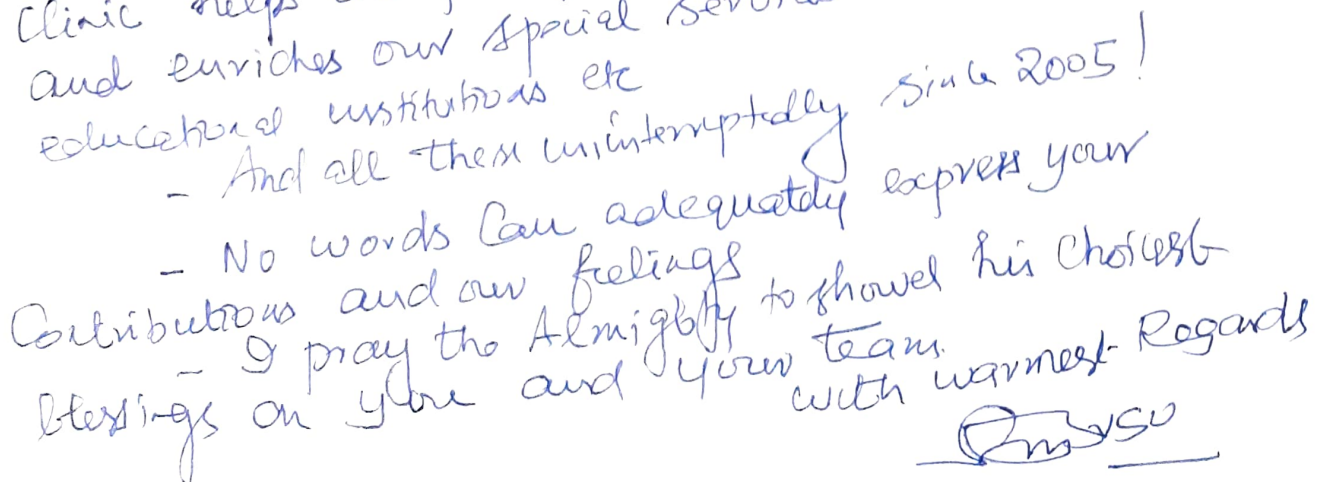 Clinic helps
and enriches our special
educational institutions etc
- And all these uninterruptedly since 2005!
- No words Can adequately express your
Contributions and our feelings
- I pray the Almighty to shower his Choicest
blessings on you and your team.
with warmest Regards